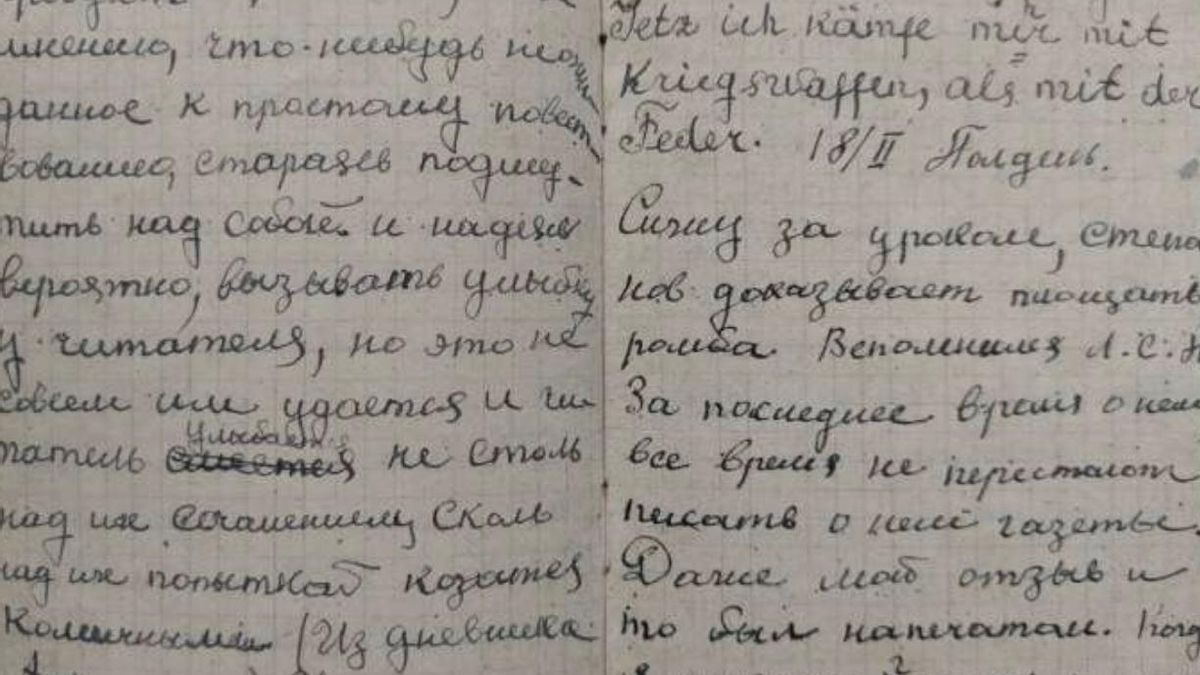 мнению, что-нибудь неожи
данное к простому повест
вованию, стараясь подшу-
тить над собой и надеясь
вероятно, вызывать улыбку
у читателя, но это не
совсем им удается и чи-
татель улыбается не столь
над их сочинением сколь
над их попыткой казатся
комичными (Из дневника
Jetz ich kämfe mir mit
Kriegswaffen, als mit der
Feder. 18/II Полдень.
Сижу за уроком, Степа
нов доказывает площать
ромба. Вспомнился Л.С.
За последнее время о нем
все время не перестают
писать о нем газеты.
Даже мой отзыв и
то был напечатан. Когд